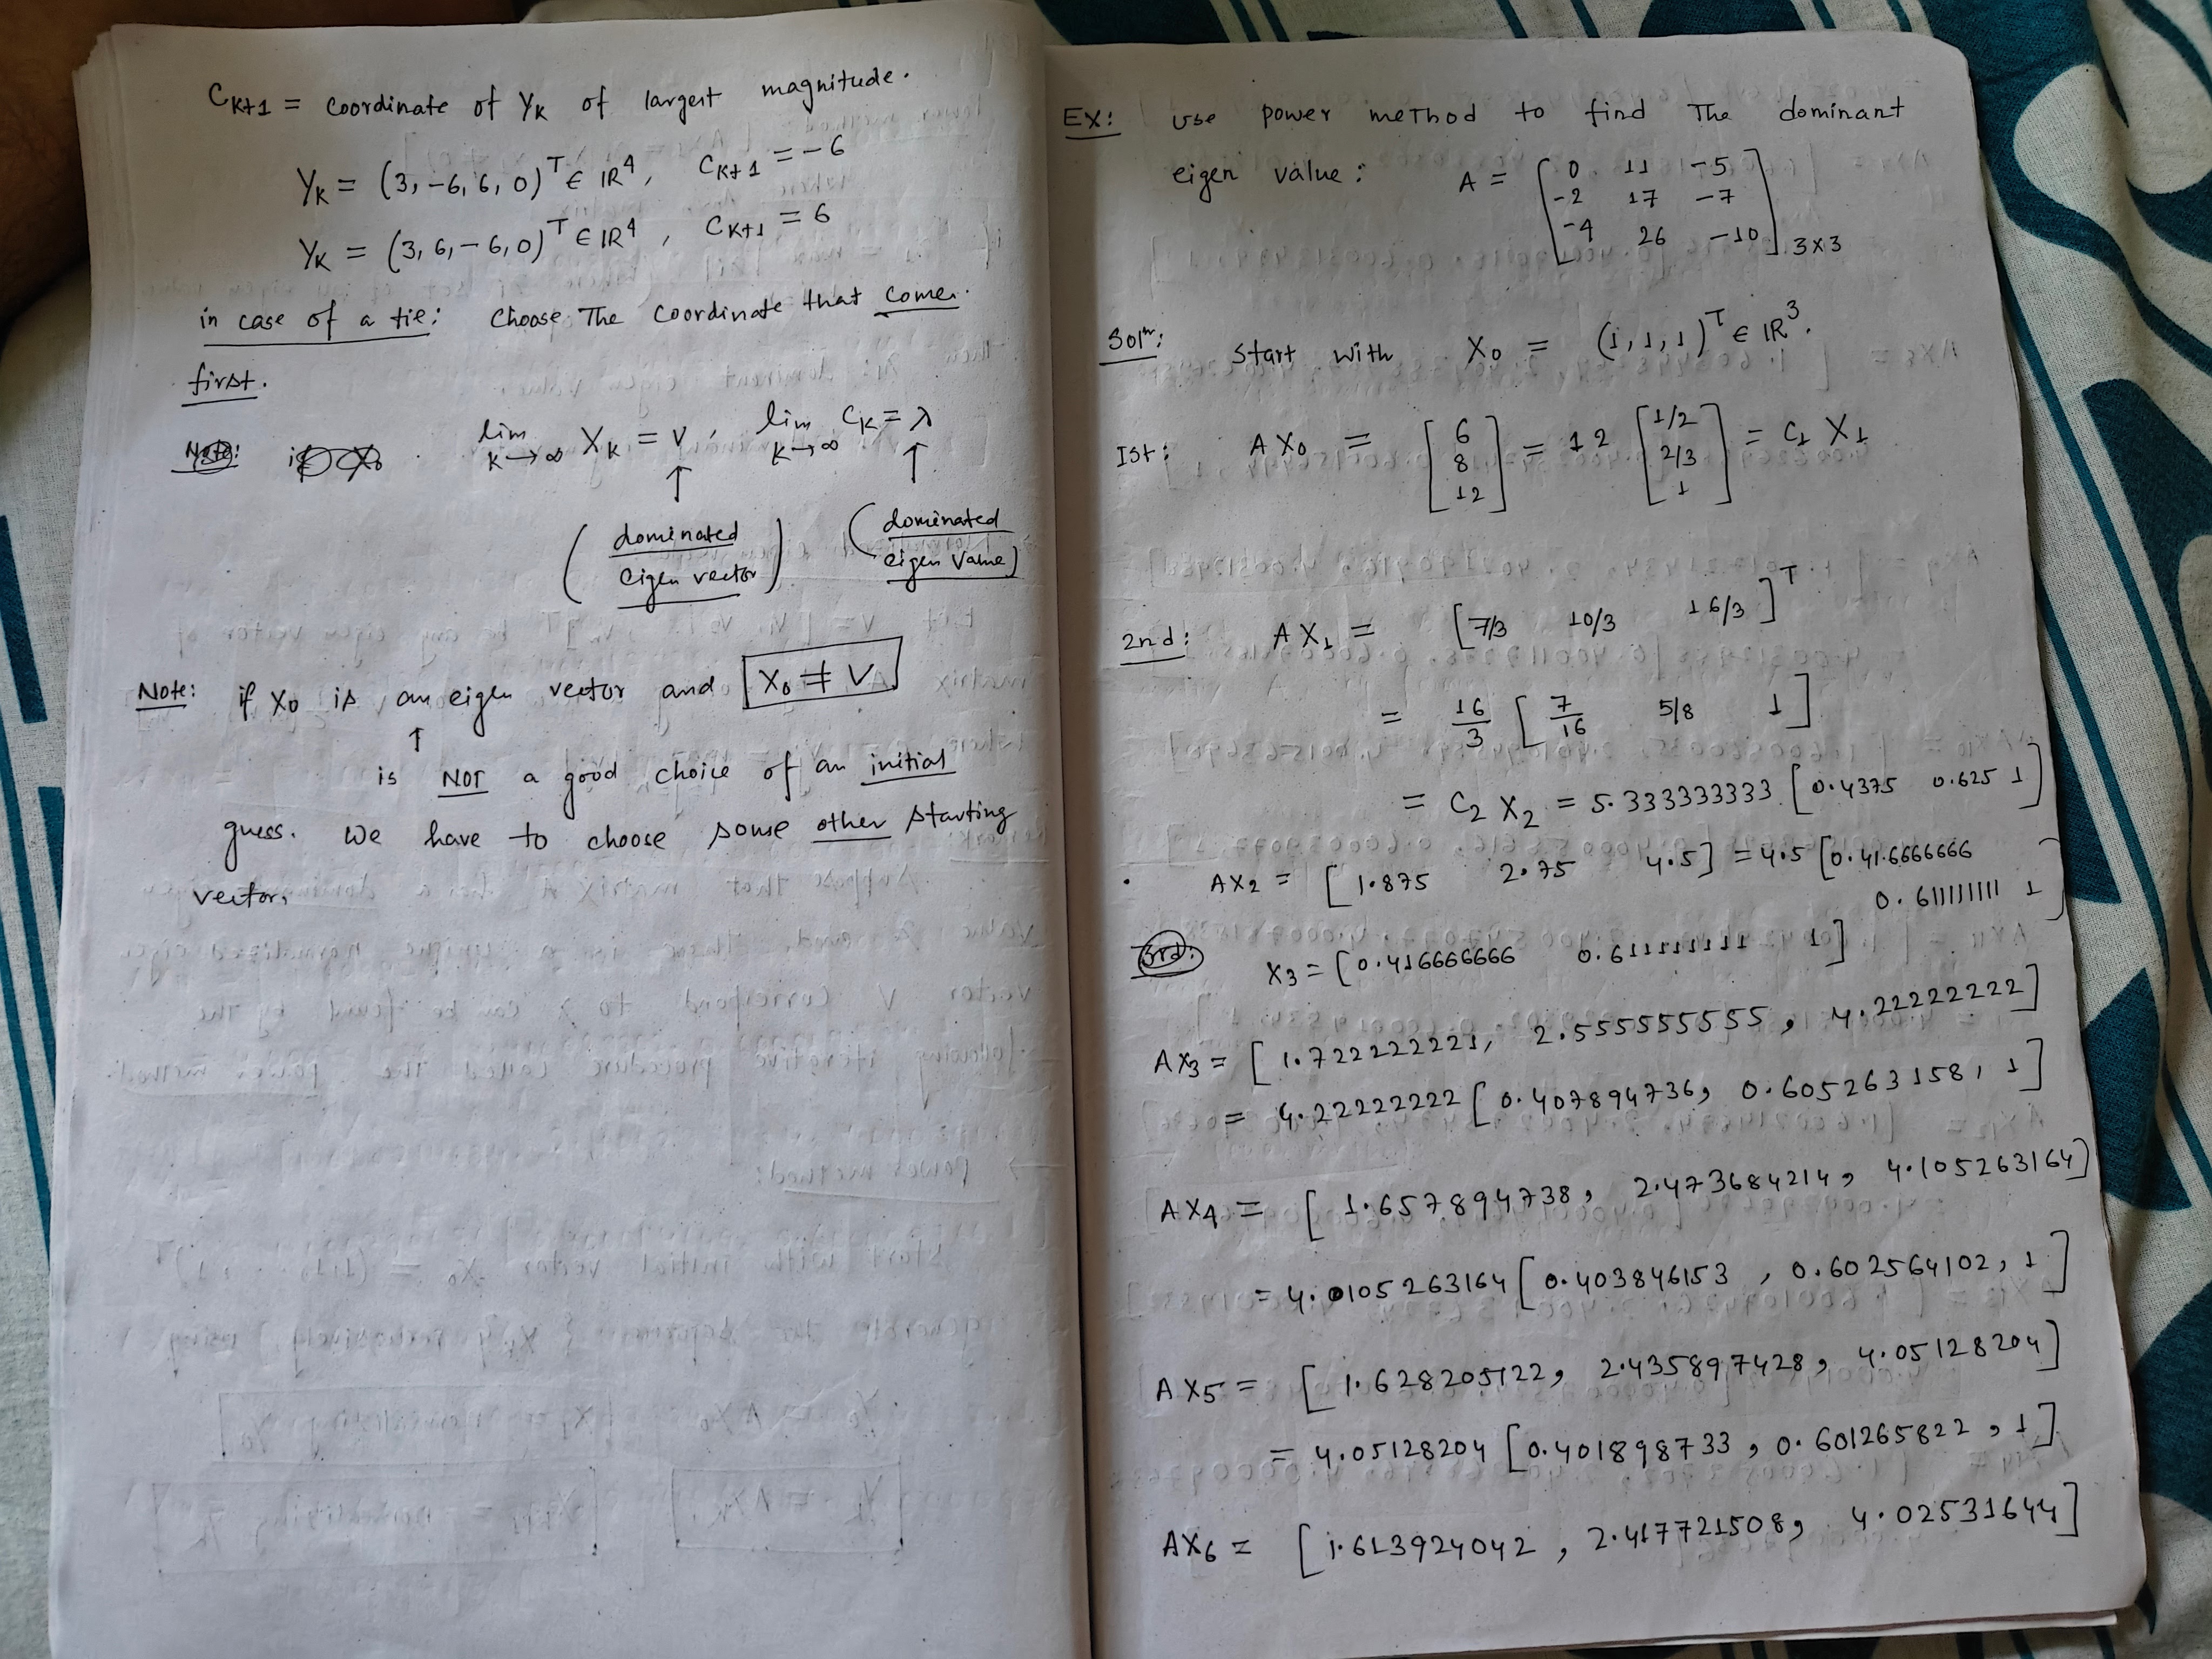 CK+1 = coordinate of YK of largest magnitude.
YK = (3, -6, 6, 0)^T ∈ IR^4, CK+1 = -6
YK = (3, 6, -6, 0)^T ∈ IR^4, CK+1 = 6
in case of a tie: Choose The coordinate that comes
first.
Note: lim K→∞ XK = V, lim K→∞ CK = λ
↑ ↑
(dominated eigen vector) (dominated eigen value)
Note: if X0 is an eigen vector and X0 ≠ V
↑
is NOT a good choice of an initial
guess. We have to choose some other starting
vector.
EX: Use power meThod to find The dominant
eigen value: A = [0 11 -5
-2 17 -7
-4 26 -10] 3x3
Solⁿ: Start with X0 = (1, 1, 1)^T ∈ IR^3.
Ist: AX0 = [6 8 12] = 12 [1/2 2/3 1] = C1 X1
2nd: AX1 = [7/3 10/3 16/3]^T
= 16/3 [7/16 5/8 1]
= C2 X2 = 5.333333333 [0.4375 0.625 1]
. AX2 = [1.875 2.75 4.5] = 4.5 [0.416666666
0.611111111 1]
3rd: X3 = [0.416666666 0.611111111 1]
AX3 = [1.722222221, 2.555555555, 4.22222222]
= 4.22222222 [0.407894736, 0.605263158, 1]
AX4 = [1.657894738, 2.473684214, 4.105263164]
= 4.0105263164 [0.403846153, 0.602564102, 1]
AX5 = [1.628205122, 2.435897428, 4.05128204]
= 4.05128204 [0.401898733, 0.601265822, 1]
AX6 = [1.613924042, 2.417721508, 4.02531644]